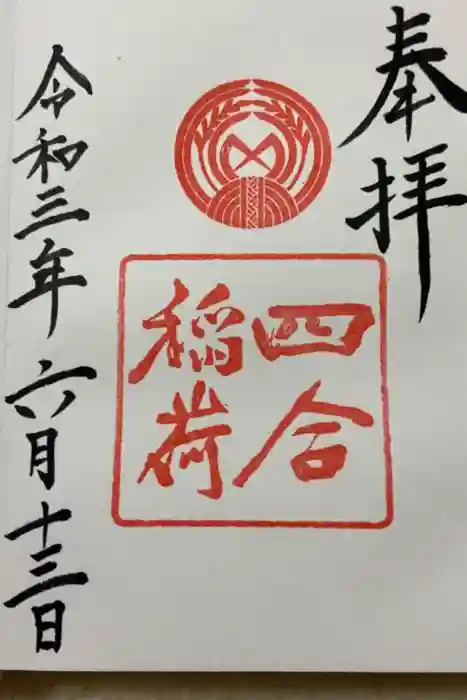 奉拝
四合
稲荷
令和三年六月十三日